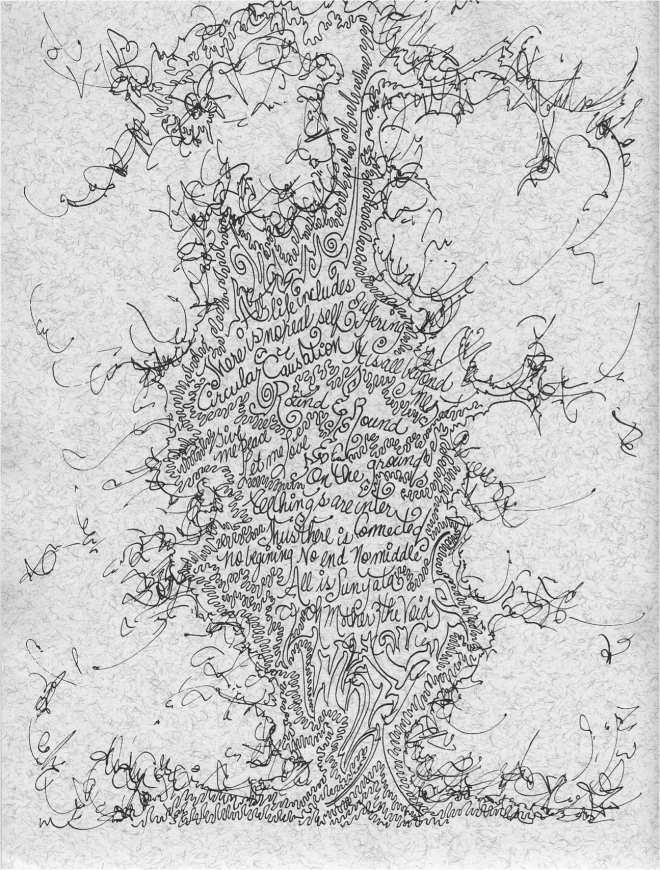 As life includes Suffering
There is no real self
Circular Causation It is all beyond me
Round & Round
Give me bread
Let me love
On the ground
All things are inter
Thus there is connected
no begining No end No middle
All is Sunyata
Mother the Void